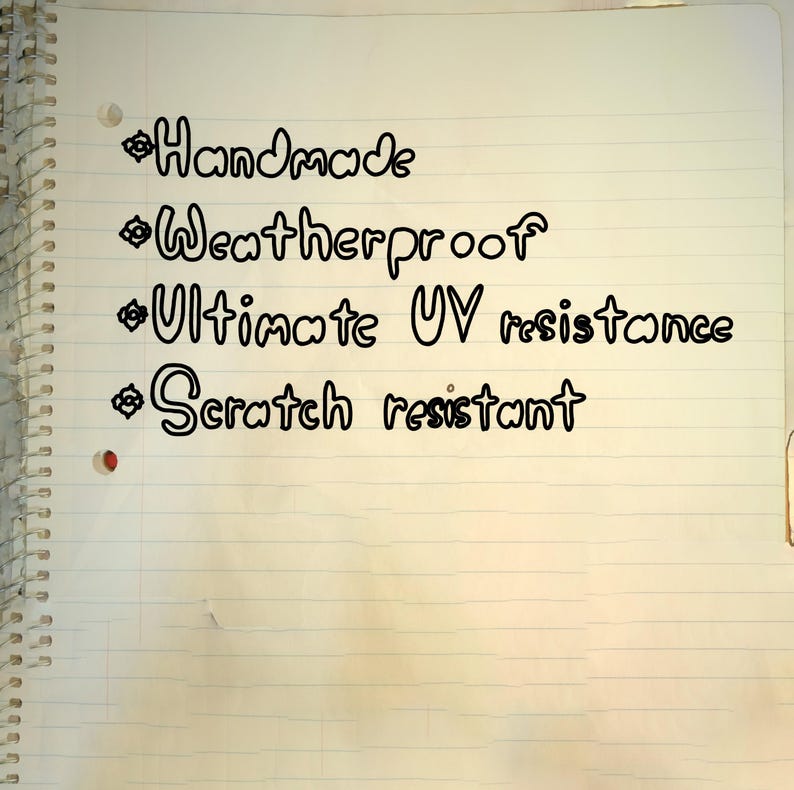 Handmade
Weatherproof
Ultimate UV resistance
Scratch resistant